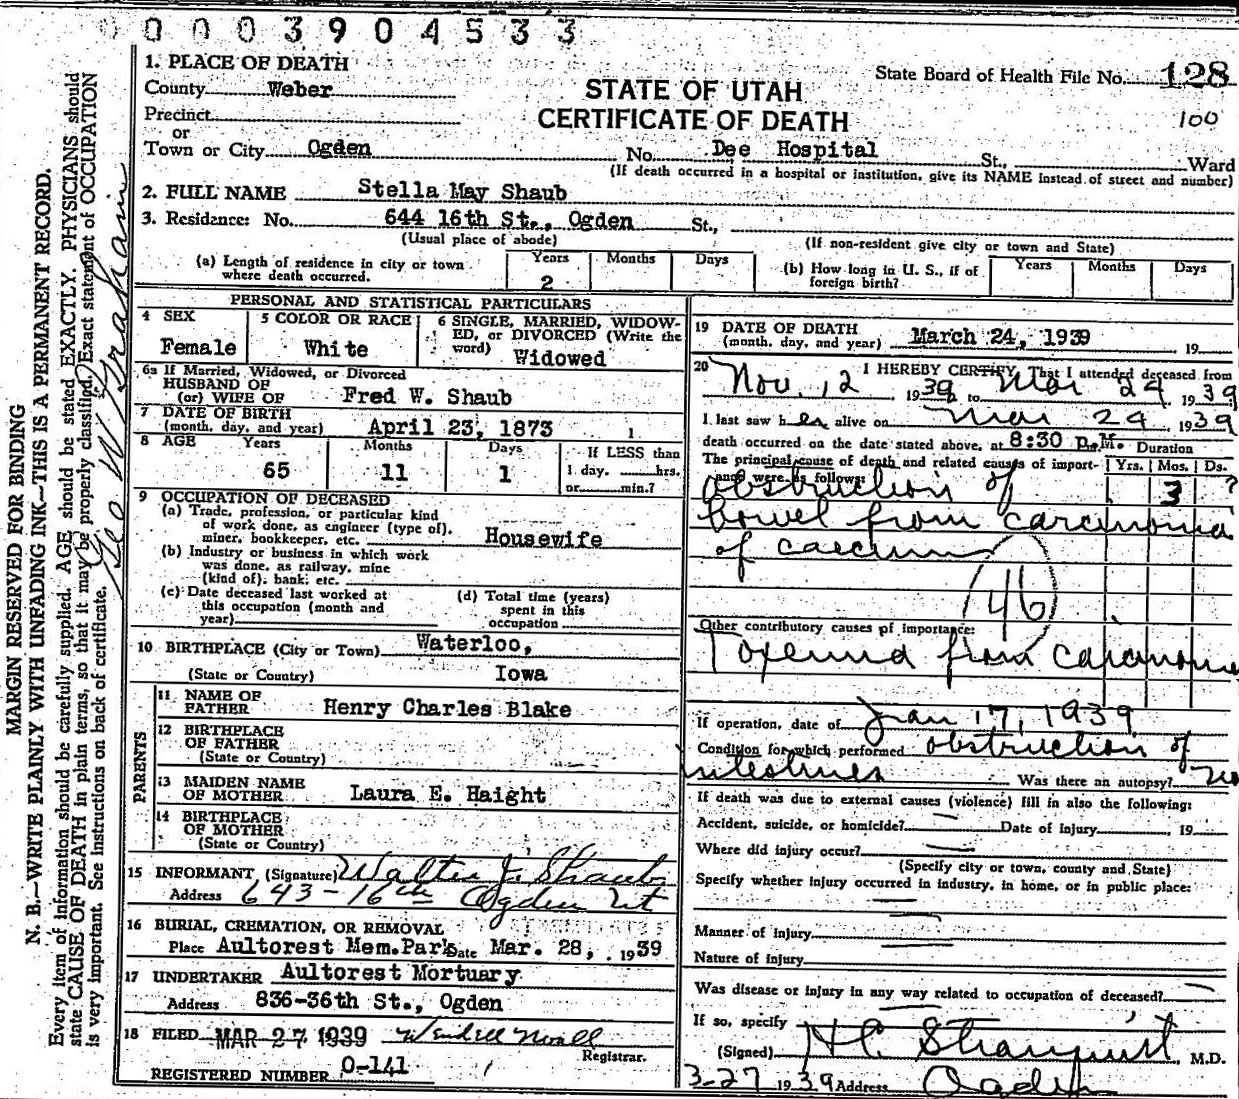 0003904533
1. PLACE OF DEATH
County Weber
Precinct
or
Town or City Ogden
STATE OF UTAH
CERTIFICATE OF DEATH
State Board of Health File No. 128
100
No. Dee Hospital St., Ward
(If death occurred in a hospital or institution, give its NAME instead of street and number)
2. FULL NAME Stella May Shaub
3. Residence: No. 644 16th St., Ogden St.,
(Usual place of abode) (If non-resident give city or town and State)
(a) Length of residence in city or town where death occurred. Years 2 Months Days
(b) How long in U. S., if of foreign birth? Years Months Days
PERSONAL AND STATISTICAL PARTICULARS
4 SEX Female
5 COLOR OR RACE White
6 SINGLE, MARRIED, WIDOW-
ED, or DIVORCED (Write the
word) Widowed
6a If Married, Widowed, or Divorced
HUSBAND OF
(or) WIFE OF Fred W. Shaub
7 DATE OF BIRTH
(month, day, and year) April 23, 1873
8 AGE Years 65 Months 11 Days 1
If LESS than
1 day, hrs.
or min.?
9 OCCUPATION OF DECEASED
(a) Trade, profession, or particular kind
of work done, as engineer (type of),
miner, bookkeeper, etc. Housewife
(b) Industry or business in which work
was done, as railway, mine
(kind of), bank, etc.
(c) Date deceased last worked at
this occupation (month and
year)
(d) Total time (years)
spent in this
occupation
10 BIRTHPLACE (City or Town) Waterloo,
(State or Country) Iowa
PARENTS
11 NAME OF
FATHER Henry Charles Blake
12 BIRTHPLACE
OF FATHER
(State or Country)
13 MAIDEN NAME
OF MOTHER Laura E. Haight
14 BIRTHPLACE
OF MOTHER
(State or Country)
15 INFORMANT (Signature) Walter J. Shaub
Address 643-16th Ogden Ut
16 BURIAL, CREMATION, OR REMOVAL
Place Aultorest Mem.Park Date Mar. 28, 1939
17 UNDERTAKER Aultorest Mortuary
Address 836-36th St., Ogden
18 FILED MAR 27 1939 Wendell
Registrar.
REGISTERED NUMBER 0-141
19 DATE OF DEATH
(month, day, and year) March 24, 1939 19
20 I HEREBY CERTIFY, That I attended deceased from
Nov. 12 1939 to Mar 24 1939
I last saw her alive on Mar 24 1939
death occurred on the date stated above, at 8:30 P.M. Duration
The principal cause of death and related causes of import-
ance were as follows: Yrs. Mos. Ds.
obstruction of 3 ?
bowel from carcinoma
of caecum
146
Other contributory causes of importance:
Toxemia from carcinoma
If operation, date of Jan 17, 1939
Condition for which performed obstruction of
intestines Was there an autopsy? no
If death was due to external causes (violence) fill in also the following:
Accident, suicide, or homicide? Date of injury , 19
Where did injury occur?
(Specify city or town, county and State)
Specify whether injury occurred in industry, in home, or in public place:
Manner of injury
Nature of injury
Was disease or injury in any way related to occupation of deceased?
If so, specify
(Signed) , M.D.
3-27 1939 Address Ogden
MARGIN RESERVED FOR BINDING
N. B.—WRITE PLAINLY WITH UNFADING INK—THIS IS A PERMANENT RECORD.
Every item of information should be carefully supplied. AGE should be stated EXACTLY. PHYSICIANS should
state CAUSE OF DEATH in plain terms, so that it may be properly classified. Exact statement of OCCUPATION
is very important. See instructions on back of certificate.
Geo W Graham